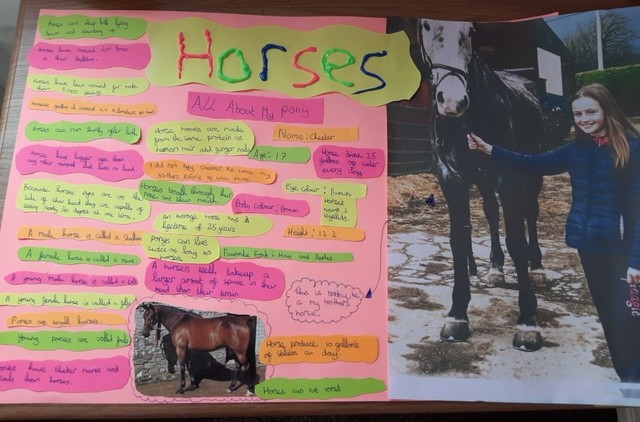 Horses
All About My pony
Horses can sleep both lying
down and standing up
Horses have around 205 bones
in their skeleton.
Horses have been around for more
than
Horses gallop at around 44 kilometres an hour.
Horses can run shortly after birth
Horses have bigger eyes than
any other mammal that lives on land.
Because horses eyes are on the
side of their head they are capable of
seeing nearly 360 degrees at one time.
A male horse is called a Stallion
A female horse is called a mare
A young male horse is called a colt
A young female horse is called a filly
Ponies are small horses.
Young ponies are called foals
Ponies have thicker manes and
tails than horses.
Horse hooves are made
from the same protein as
human hair and finger nails
Name: Chester
Age: 17
Horses drink 25
gallons of water
every day
I did not buy Chester he was my
before he was mine
Horses breath through their
nose not their mouth
Body colour: Brown
Eye colour: Brown
Horses
have 3
eyelids.
An average horse has a
lifetime of 25 years
Height: 12.2
Ponys can live
twice as long as
horses
Favourite Food: Hay and Apples
A horses teeth takeup a
larger amount of space in their
head than their brain
This is
is my brothers
horse.
Horses produce 10 gallons
of saliva a day.
Horses can not vomit